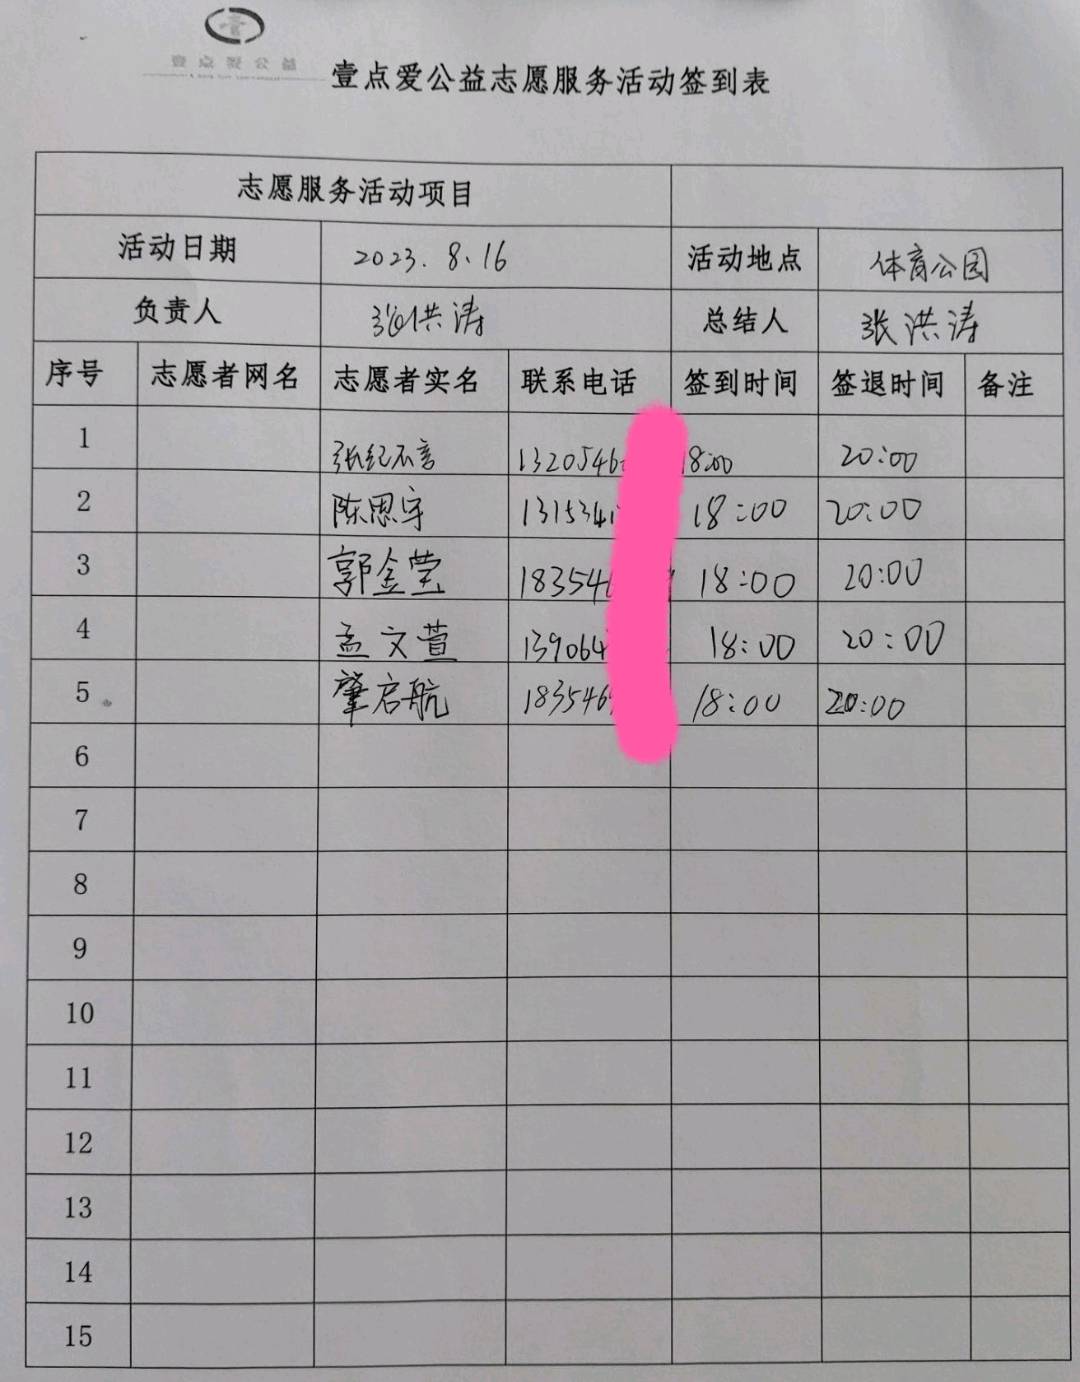 壹点爱公益
壹点爱公益志愿服务活动签到表
志愿服务活动项目
活动日期 2023.8.16 活动地点 体育公园
负责人 张洪涛 总结人 张洪涛
序号 志愿者网名 志愿者实名 联系电话 签到时间 签退时间 备注
1 张纪不言 1320546 18:00 20:00
2 陈思宇 131534 18:00 20:00
3 郭金莹 18354 18:00 20:00
4 孟文萱 139064 18:00 20:00
5 肇启航 183546 18:00 20:00
6
7
8
9
10
11
12
13
14
15